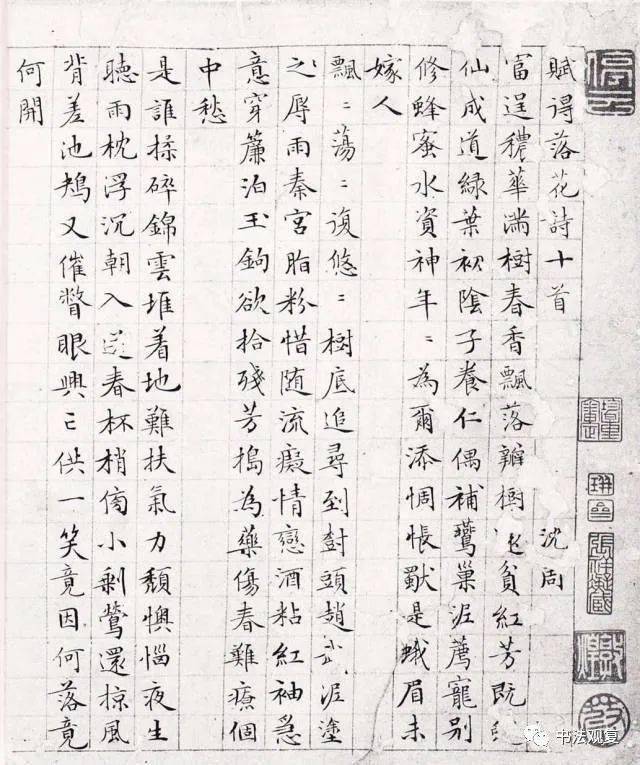 賦得落花詩十首 沈周
富逞穠華滿樹春香飄落瓣樹貧紅芳既
仙成道綠葉初陰子養仁偶補鸎巢泥薦寵別
修蜂蜜水資神年〻為爾添惆悵是蛾眉未
嫁人
飄〻蕩〻復悠〻樹底追尋到樹頭趙武泥塗
之辱雨秦宮脂粉惜随流癡情戀酒粘紅袖急
意穿簾泊玉鉤欲拾殘芳搗為藥傷春難療個
中愁
是誰揉碎錦雲堆着地難扶氣力頹懊惱夜生
聽雨枕浮沉朝入送春杯梢傍小剩鶯還掠風
背差池鳩又催瞥眼興亡供一笑竟因何落竟
何開
书法观复